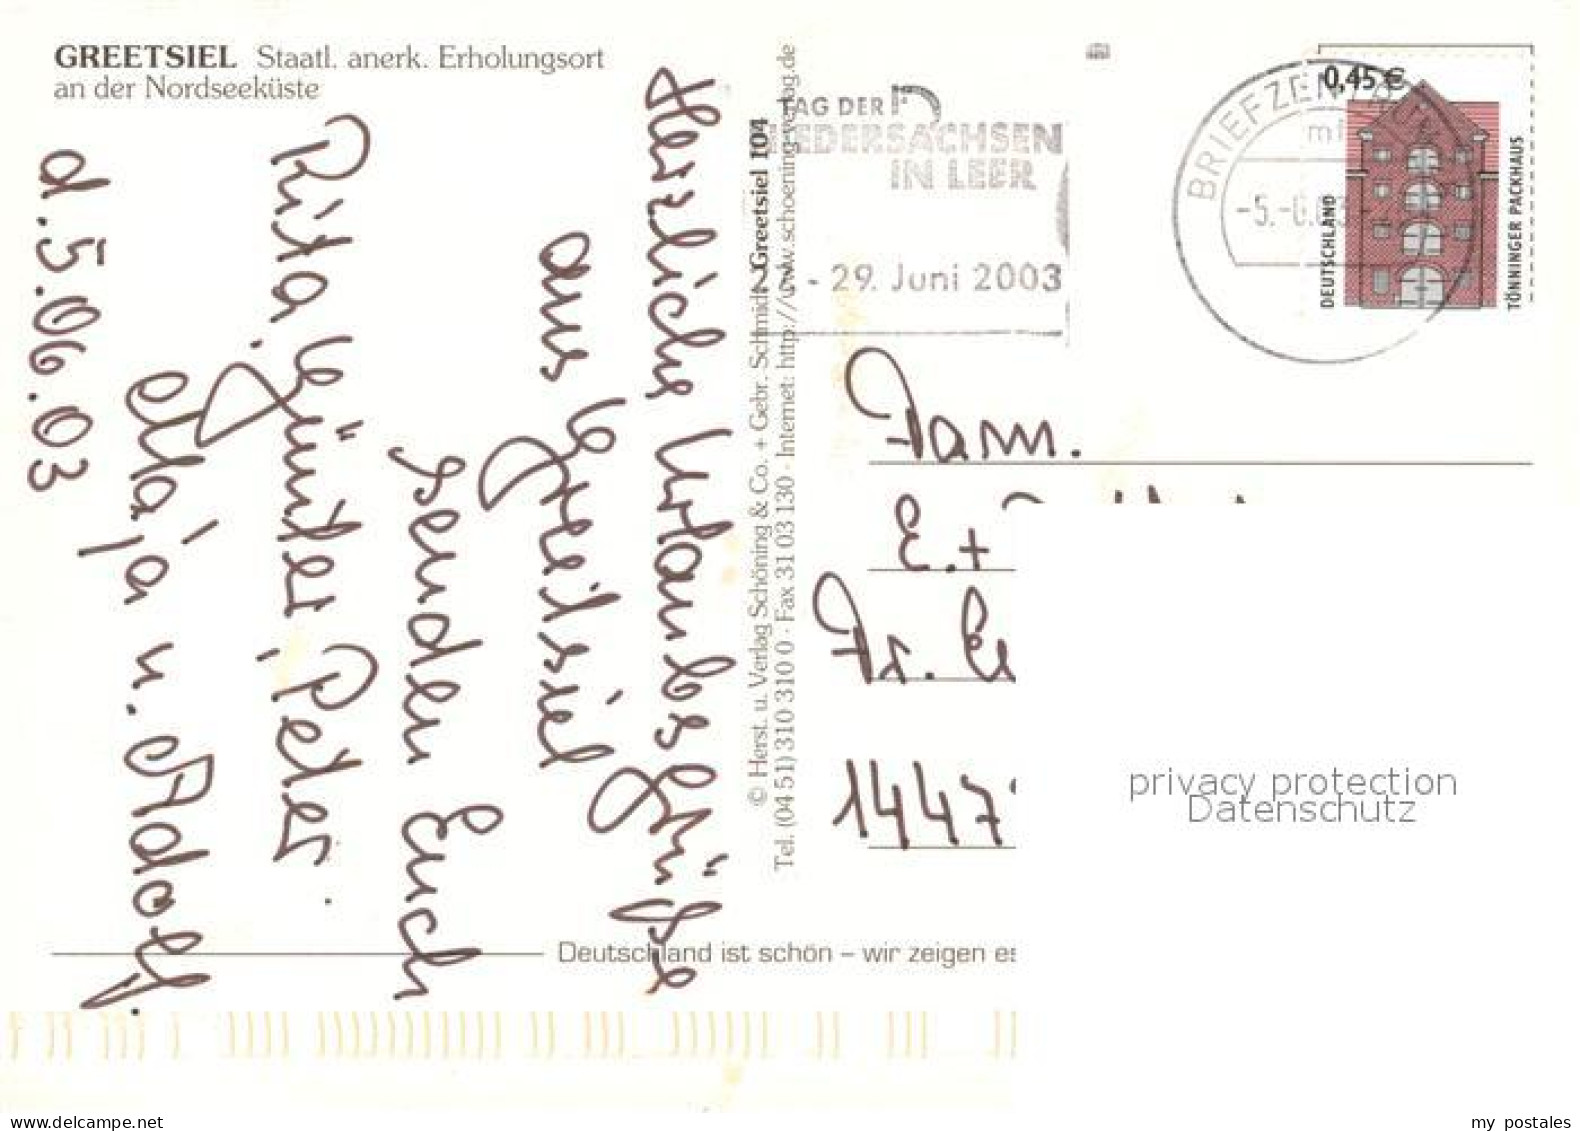 GREETSIEL Staatl. anerk. Erholungsort
an der Nordseeküste
Herzliche Urlaubsgrüße
aus Greitsiel
senden Euch
Rita, Günter, Peter.
Maja u. Adolf.
d. 5.06.03
© Herst. u. Verlag Schöning & Co. + Gebr. Schmidt · Greetsiel 104
Tel. (04 51) 310 310 0 · Fax 31 03 130 · Internet: http://www.schoening-verlag.de
TAG DER
EDERSACHSEN
IN LEER
- 29. Juni 2003
BRIEFZENTRUM
-5.-6.03
0,45 €
DEUTSCHLAND
TÖNNINGER PACKHAUS
Fam.
E. +
Fr.
1447
Deutschland ist schön – wir zeigen es
privacy protection
Datenschutz
my postales